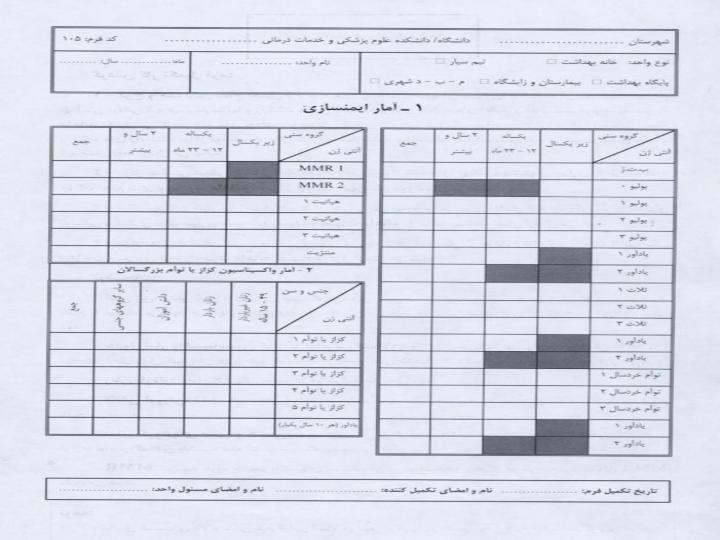 شهرستان ........................ دانشگاه/ دانشکده علوم پزشکی و خدمات درمانی ........................ کد فرم: ۱۰۵
نوع واحد: خانه بهداشت □ تیم سیار □
پایگاه بهداشت □ بیمارستان و زایشگاه □ م - ب - د شهری □
نام واحد: ........................
ماه: ............... سال: ...........
۱ ـ آمار ایمنسازی:
گروه سنی
آنتی ژن
زیر یکسال
یکساله
۱۲ - ۲۳ ماه
۲ سال و
بیشتر
جمع
ب‌ث‌ژ
پولیو ۰
پولیو ۱
پولیو ۲
پولیو ۳
یادآور ۱
یادآور ۲
ثلاث ۱
ثلاث ۲
ثلاث ۳
یادآور ۱
یادآور ۲
توأم خردسال ۱
توأم خردسال ۲
توأم خردسال ۳
یادآور ۱
یادآور ۲
گروه سنی
آنتی ژن
زیر یکسال
یکساله
۱۲ - ۲۳ ماه
۲ سال و
بیشتر
جمع
MMR 1
MMR 2
هپاتیت ۱
هپاتیت ۲
هپاتیت ۳
مننژیت
۲ - آمار واکسیناسیون کزاز یا توأم بزرگسالان
جنس و سن
آنتی ژن
زنان غیرباردار
۱۵ - ۴۹ ساله
زنان باردار
دانش آموزان
سایر گروههای جنسی
جمع
کزاز یا توأم ۱
کزاز یا توأم ۲
کزاز یا توأم ۳
کزاز یا توأم ۴
کزاز یا توأم ۵
یادآور (هر ۱۰ سال یکبار)
تاریخ تکمیل فرم: ........................ نام و امضای تکمیل کننده: ........................ نام و امضای مسئول واحد: ........................